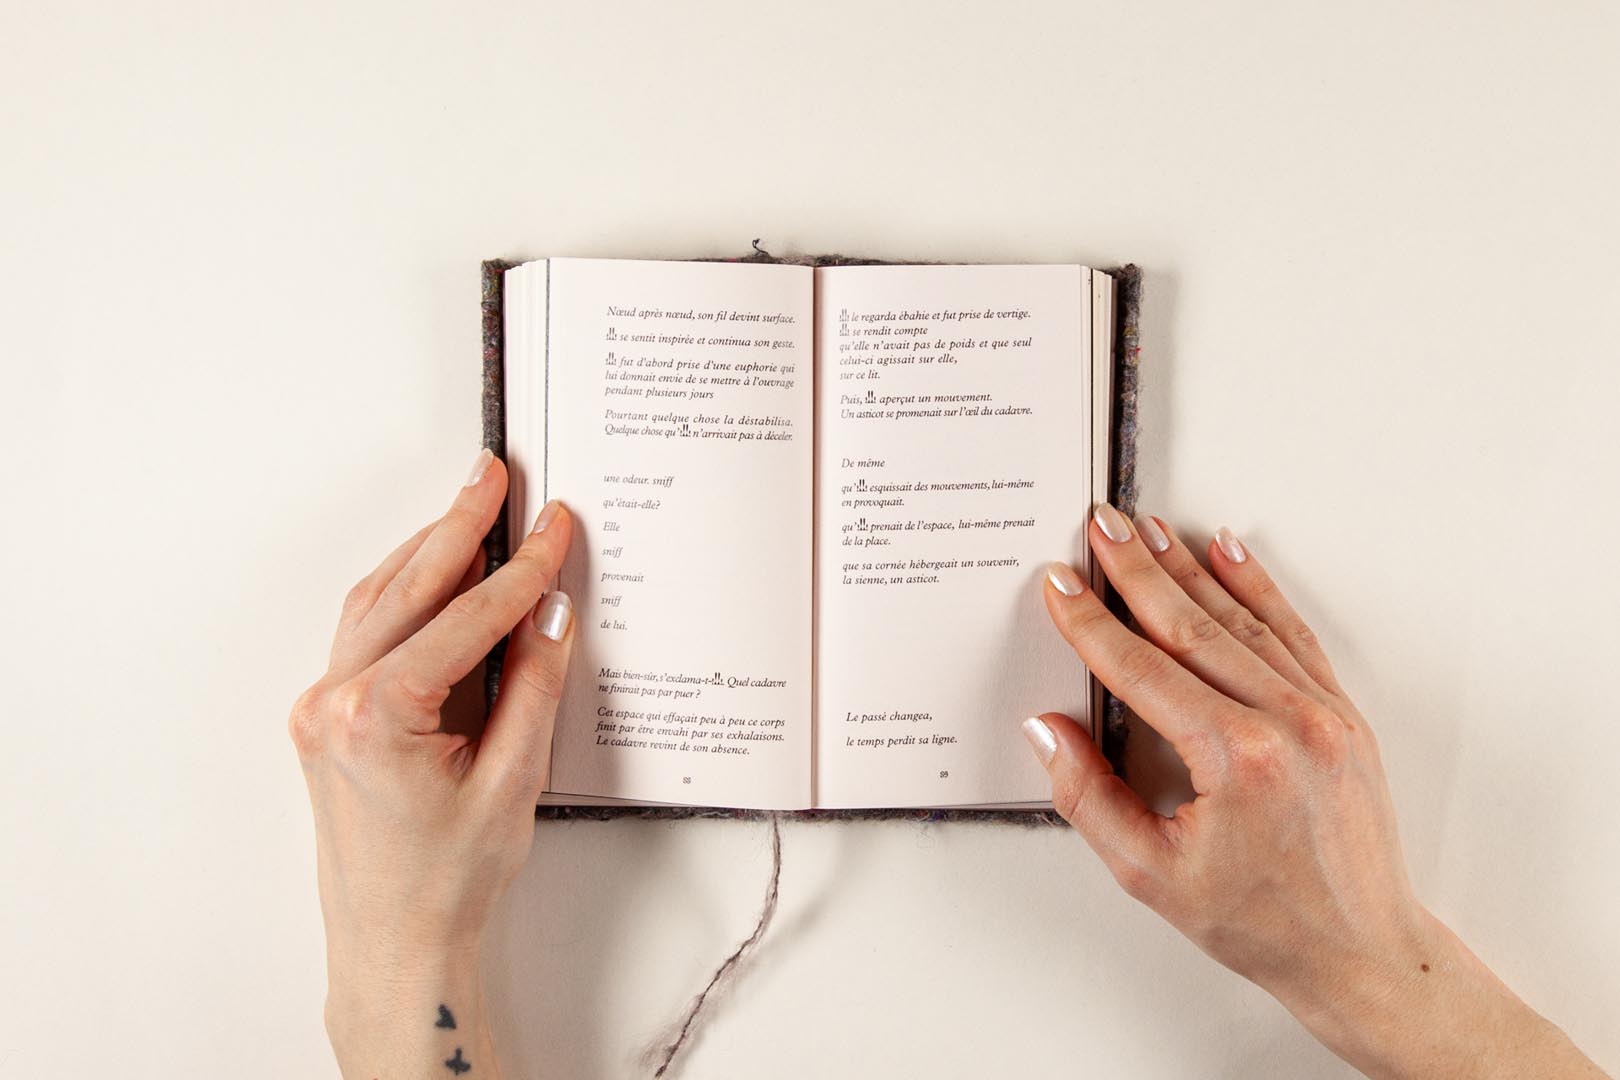 Nœud après nœud, son fil devint surface.
se sentit inspirée et continua son geste.
fut d'abord prise d'une euphorie qui
lui donnait envie de se mettre à l'ouvrage
pendant plusieurs jours
Pourtant quelque chose la déstabilisa.
Quelque chose qu' n'arrivait pas à déceler.
une odeur. sniff
qu'était-elle?
Elle
sniff
provenait
sniff
de lui.
Mais bien-sûr, s'exclama-t- . Quel cadavre
ne finirait pas par puer ?
Cet espace qui effaçait peu à peu ce corps
finit par être envahi par ses exhalaisons.
Le cadavre revint de son absence.
88
le regarda ébahie et fut prise de vertige.
se rendit compte
qu'elle n'avait pas de poids et que seul
celui-ci agissait sur elle,
sur ce lit.
Puis, aperçut un mouvement.
Un asticot se promenait sur l'œil du cadavre.
De même
qu' esquissait des mouvements, lui-même
en provoquait.
qu' prenait de l'espace, lui-même prenait
de la place.
que sa cornée hébergeait un souvenir,
la sienne, un asticot.
Le passé changea,
le temps perdit sa ligne.
89